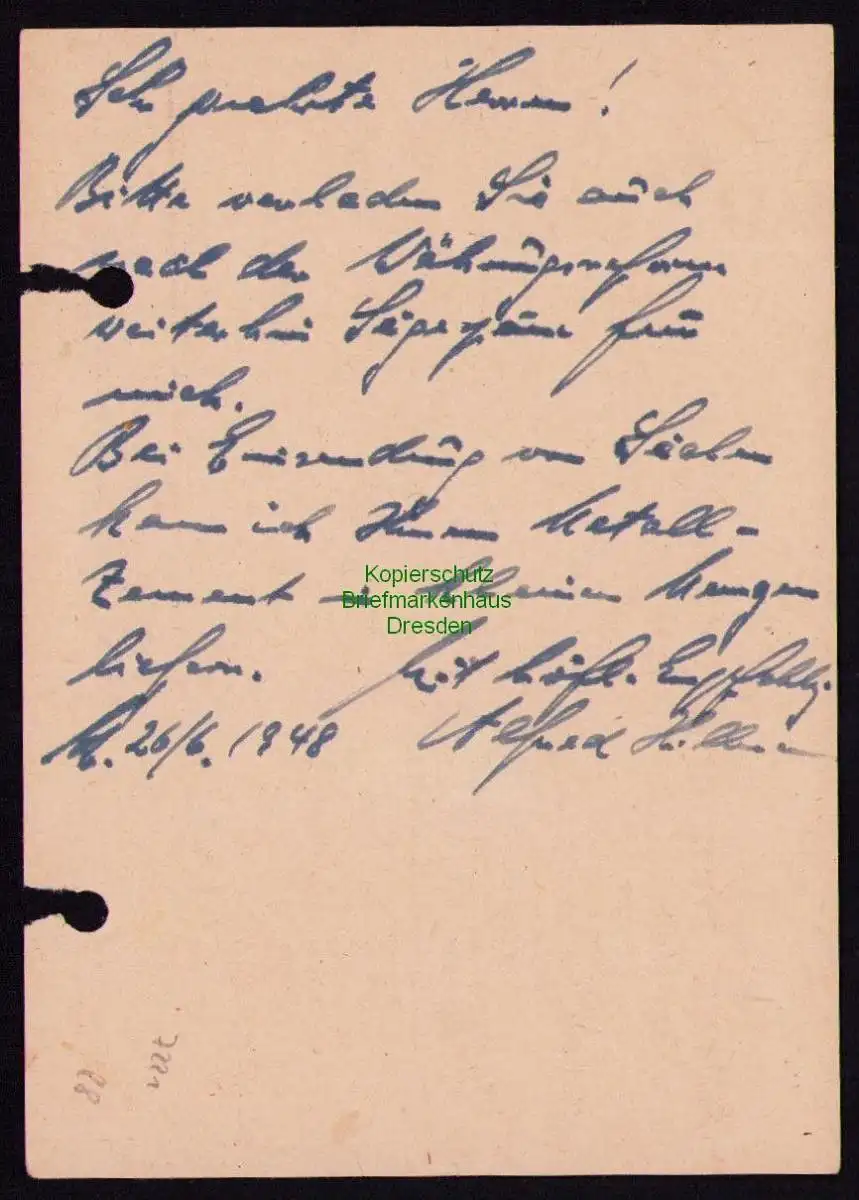 Sehr geehrte Herren!
Bitte verladen Sie auch
nach der Währungsreform
weiterhin Sägespäne für
mich.
Bei Einsendung von Säcken
kann ich Ihnen Metall-
Zement in kleinen Mengen
liefern. Mit höfl. Empfehlg.
M. 26/6. 1948 Alfred
Kopierschutz
Briefmarkenhaus
Dresden